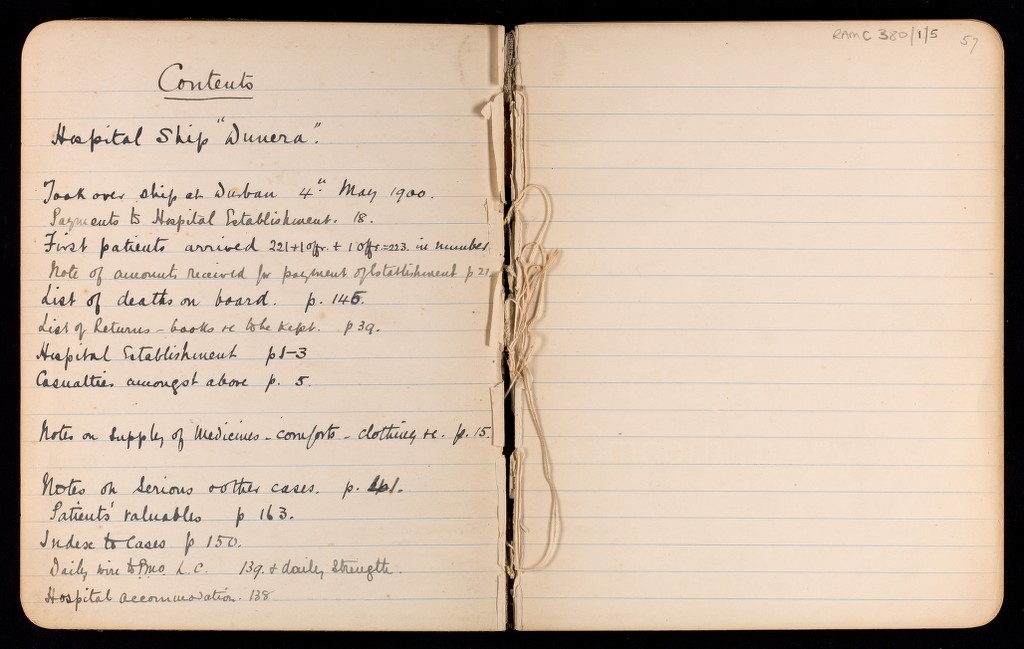 Contents
Hospital Ship "Dunera".
Took over ship at Durban 4th May 1900.
Payments to Hospital Establishment. 18.
First patients arrived 221+1 offr. + 1 offr.=223. in number
Note of amounts received for payment of Establishment p 21
List of deaths on board. p. 145.
List of Returns - books &c to be kept. p 39.
Hospital Establishment p 1-3
Casualties amongst above p. 5.
Notes on supply of Medicines - comforts - clothing &c. p. 15.
Notes on Serious & other cases. p.
Patients' valuables p 163.
Index to Cases p 150.
Daily wire to PMO. L.C. 139. & daily Strength.
Hospital accommodation. 138
RAMC 380/1/5 57